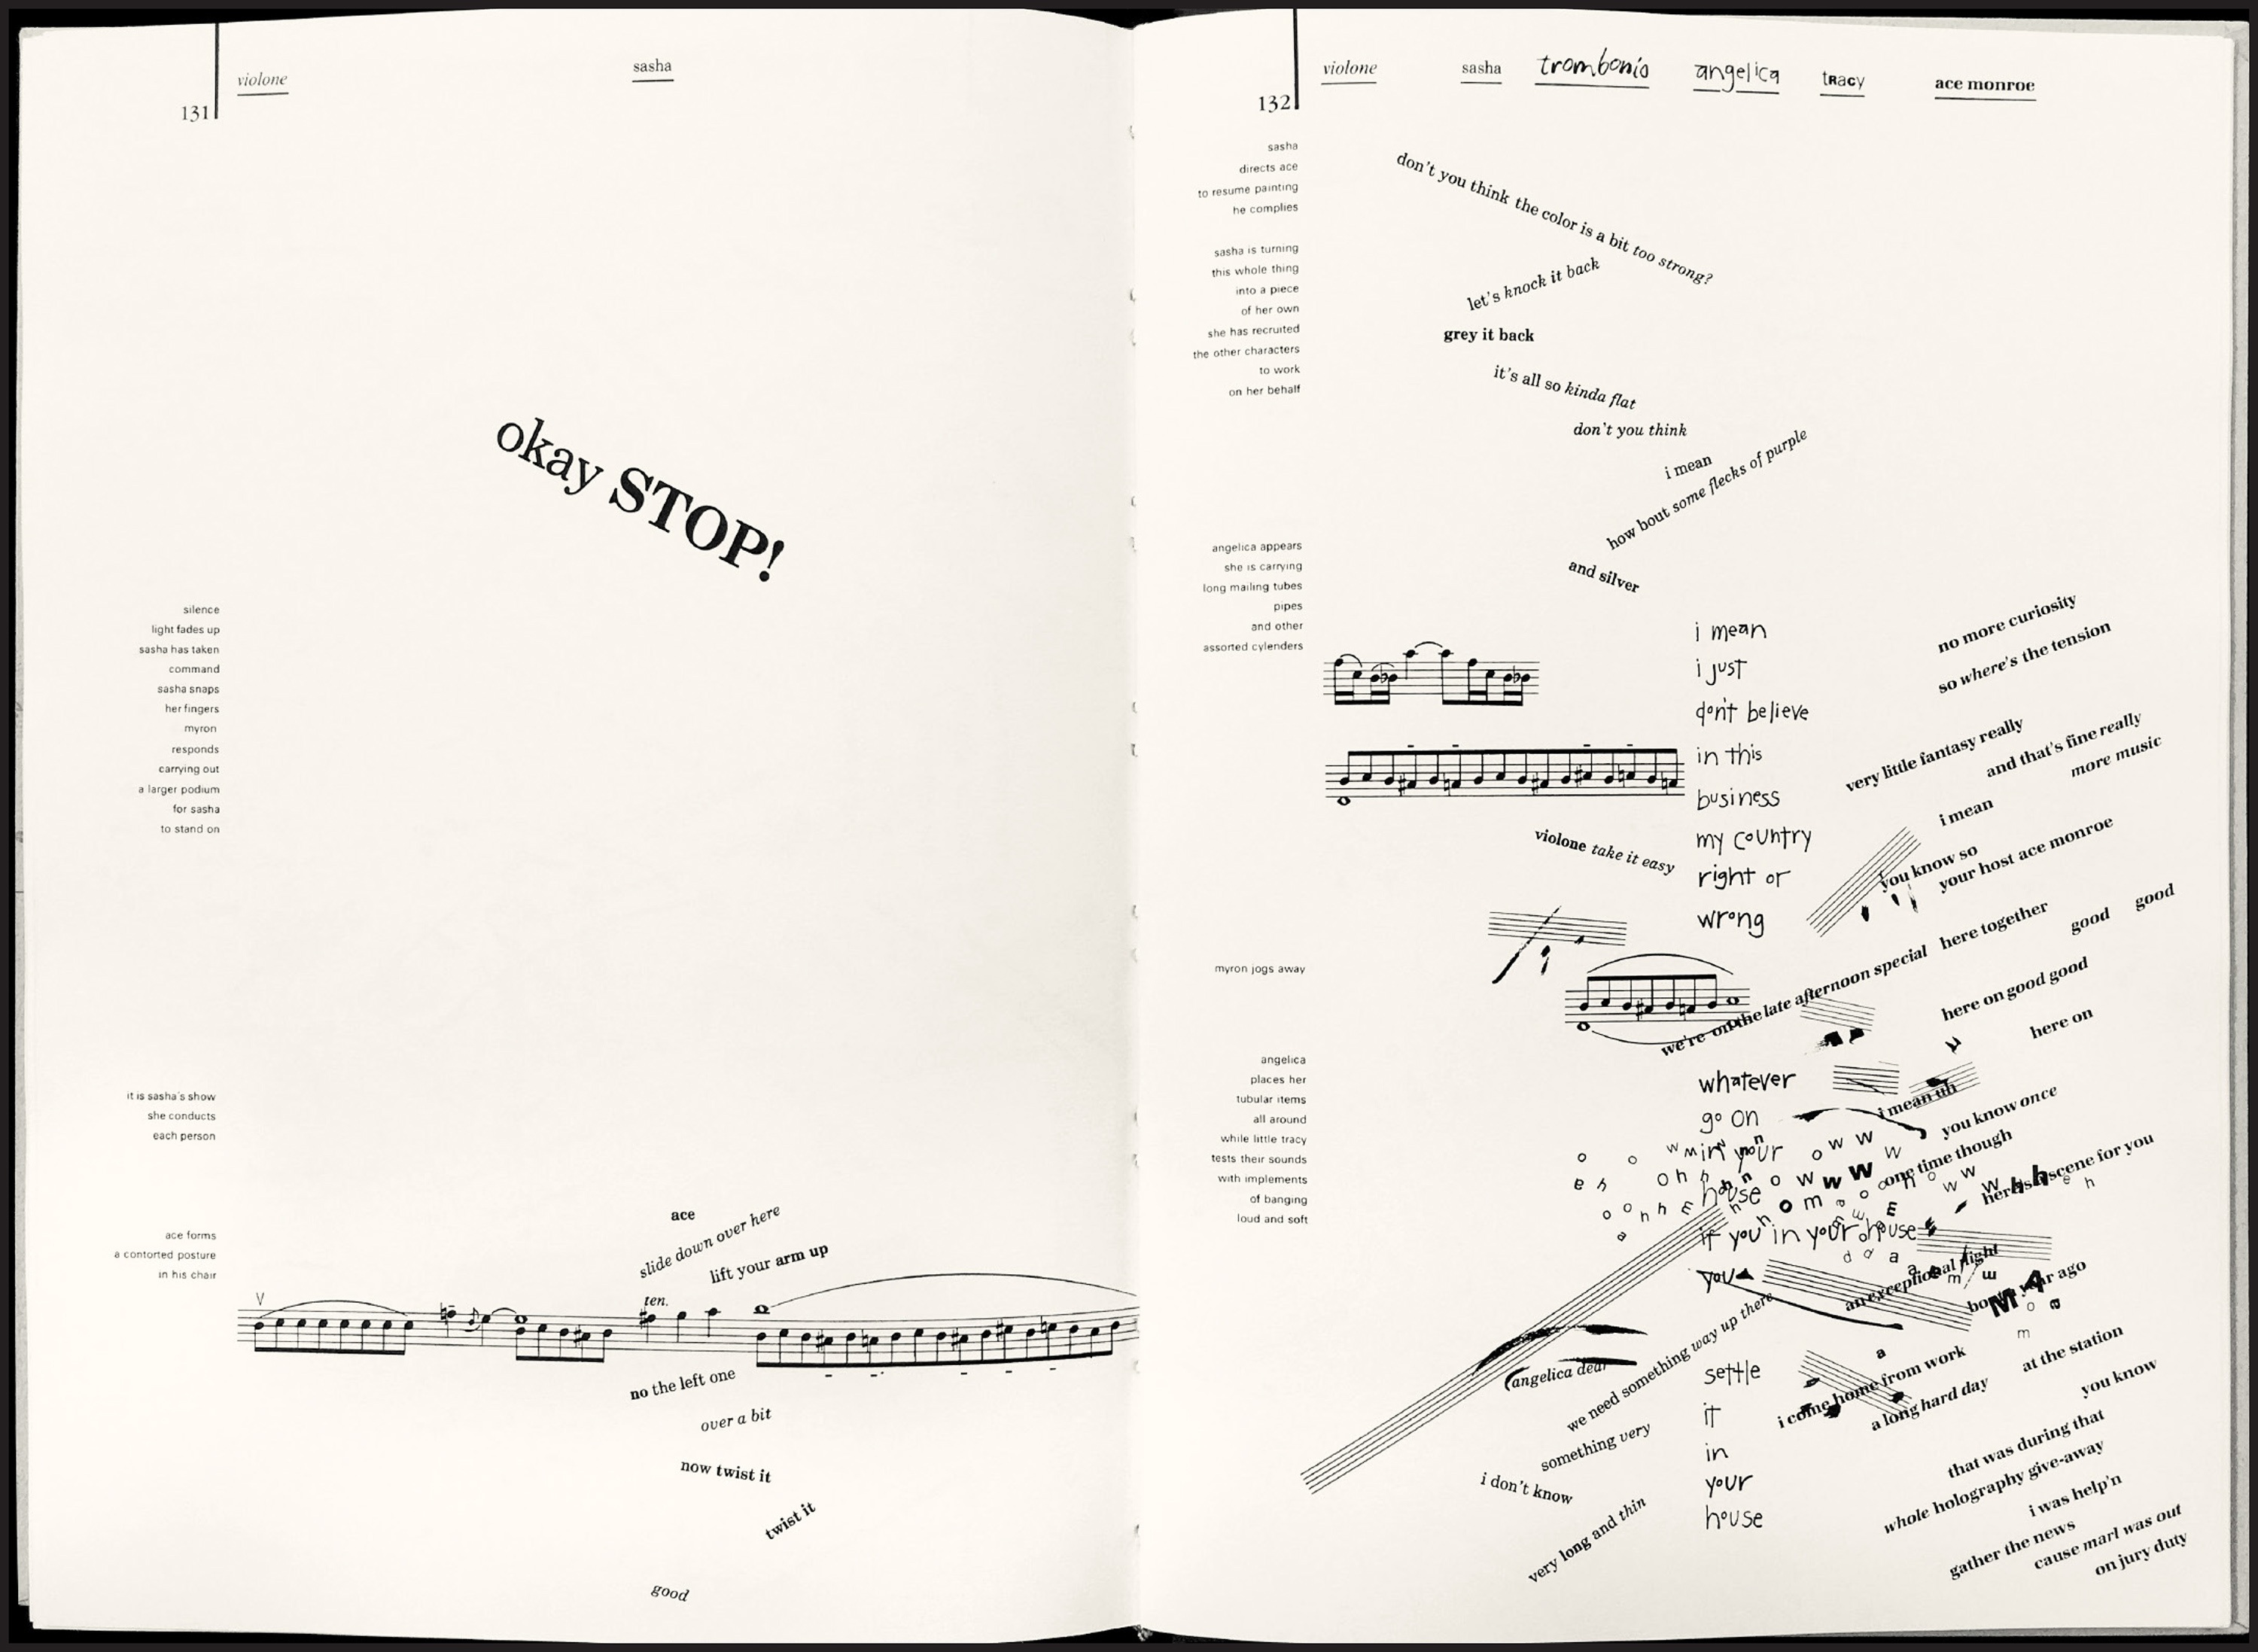 131
violone
sasha
okay STOP!
silence
light fades up
sasha has taken
command
sasha snaps
her fingers
myron
responds
carrying out
a larger podium
for sasha
to stand on
it is sasha's show
she conducts
each person
ace forms
a contorted posture
in his chair
ace
slide down over here
lift your arm up
ten.
no the left one
over a bit
now twist it
twist it
good
132
violone
sasha
trombonio
angelica
tracy
ace monroe
sasha
directs ace
to resume painting
he complies
sasha is turning
this whole thing
into a piece
of her own
she has recruited
the other characters
to work
on her behalf
angelica appears
she is carrying
long mailing tubes
pipes
and other
assorted cylenders
myron jogs away
angelica
places her
tubular items
all around
while little tracy
tests their sounds
with implements
of banging
loud and soft
don't you think the color is a bit too strong?
let's knock it back
grey it back
it's all so kinda flat
don't you think
i mean
how bout some flecks of purple
and silver
violone take it easy
angelica dear
we need something way up there
something very
i don't know
very long and thin
i mean
i just
don't believe
in this
business
my country
right or
wrong
whatever
go on
in your
house
if you in your house
you
settle
it
in
your
house
no more curiosity
so where's the tension
very little fantasy really
and that's fine really
more music
i mean
you know so
your host ace monroe
we're on the late afternoon special
here together
good
good
here on good good
here on
i mean uh
you know once
one time though
here's a scene for you
an exceptional night
year ago
i come home from work
at the station
a long hard day
you know
that was during that
whole holography give-away
i was help'n
gather the news
cause marl was out
on jury duty